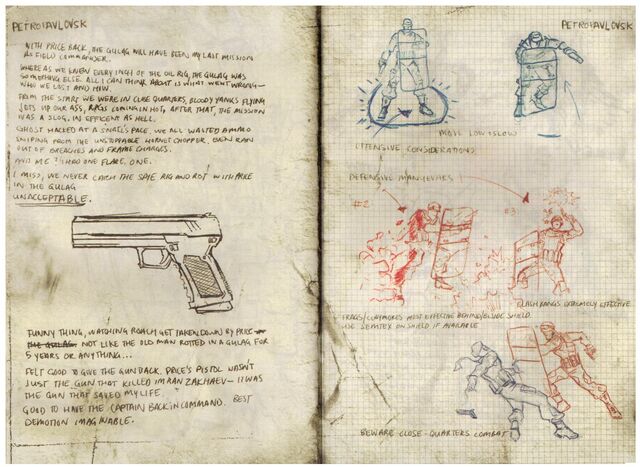 PETROPAVLOVSK
WITH PRICE BACK, THE GULAG WILL HAVE BEEN MY LAST MISSION
AS FIELD COMMANDER.
WHEREAS WE KNEW EVERY INCH OF THE OIL RIG, THE GULAG WAS
SOMETHING ELSE. ALL I CAN THINK ABOUT IS WHAT WENT WRONG—
WHO WE LOST AND HOW.
FROM THE START WE WERE IN CLOSE QUARTERS, BLOODY YANKS FLYING
JETS UP OUR ASS, RPGS COMING IN HOT, AFTER THAT, THE MISSION
WAS A SLOG, INEFFICIENT AS HELL.
GHOST HACKED AT A SNAIL'S PACE. WE ALL WASTED AMMO
SNIPING FROM THE UNSTOPPABLE HORNET CHOPPER. EVEN RAN
OUT OF BREACHES AND FRAME CHARGES.
AND ME? I HAD ONE FLARE. ONE.
I MISS, WE NEVER CATCH THE SPIE RIG AND ROT WITH PRICE
IN THE GULAG
UNACCEPTABLE.
FUNNY THING, WATCHING ROACH GET TAKEN DOWN BY PRICE
THE GULAG. NOT LIKE THE OLD MAN ROTTED IN A GULAG FOR
5 YEARS OR ANYTHING...
FELT GOOD TO GIVE THE GUN BACK. PRICE'S PISTOL WASN'T
JUST THE GUN THAT KILLED IMRAN ZAKHAEV— IT WAS
THE GUN THAT SAVED MY LIFE.
GOOD TO HAVE THE CAPTAIN BACK IN COMMAND. BEST
DEMOTION IMAGINABLE.
PETROPAVLOVSK
MOVE LOW & SLOW
OFFENSIVE CONSIDERATIONS
DEFENSIVE MANUEVARS
#2
#3
FLASH BANGS EXTREMELY EFFECTIVE
FRAGS/CLAYMORES MOST EFFECTIVE BEHIND/BESIDE SHIELD.
USE SEMTEX ON SHIELD IF AVAILABLE
BEWARE CLOSE-QUARTERS COMBAT